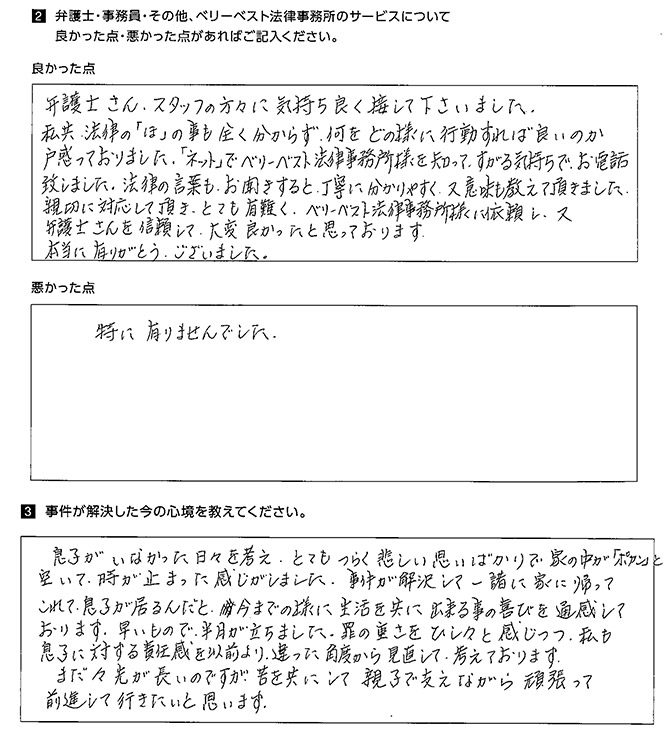 2 弁護士・事務員・その他、ベリーベスト法律事務所のサービスについて
良かった点・悪かった点があればご記入ください。
良かった点
弁護士さん、スタッフの方々に気持ち良く接して下さいました。
私共、法律の「ほ」の事も全く分からず、何をどの様に行動すれば良いのか
戸惑っておりました。「ネット」でベリーベスト法律事務所様を知って、すがる気持ちで、お電話
致しました。法律の言葉も、お聞きすると、丁寧に分かりやすく、又意味も教えて頂きました。
親切に対応して頂き、とても有難く、ベリーベスト法律事務所様に依頼し、又
弁護士さんを信頼して、大変良かったと思っております。
本当に有りがとう、ございました。
悪かった点
特に有りませんでした。
3 事件が解決した今の心境を教えてください。
息子がいなかった日々を考え、とてもつらく悲しい思いばかりで家の中が「ポカン」と
空いて、時が止まった感じがしました。事件が解決して一諸に家に帰って
これて、息子が居るんだと、今までの様に生活を共に出来る事の喜びを通感して
おります。早いもので、半月が立ちました。罪の重さをひしひしと感じつつ、私も
息子に対する責任感を以前より、違った角度から見直して、考えております。
まだ々先が長いのですが苦を共にして親子で支えながら頑張って
前進して行きたいと思います。